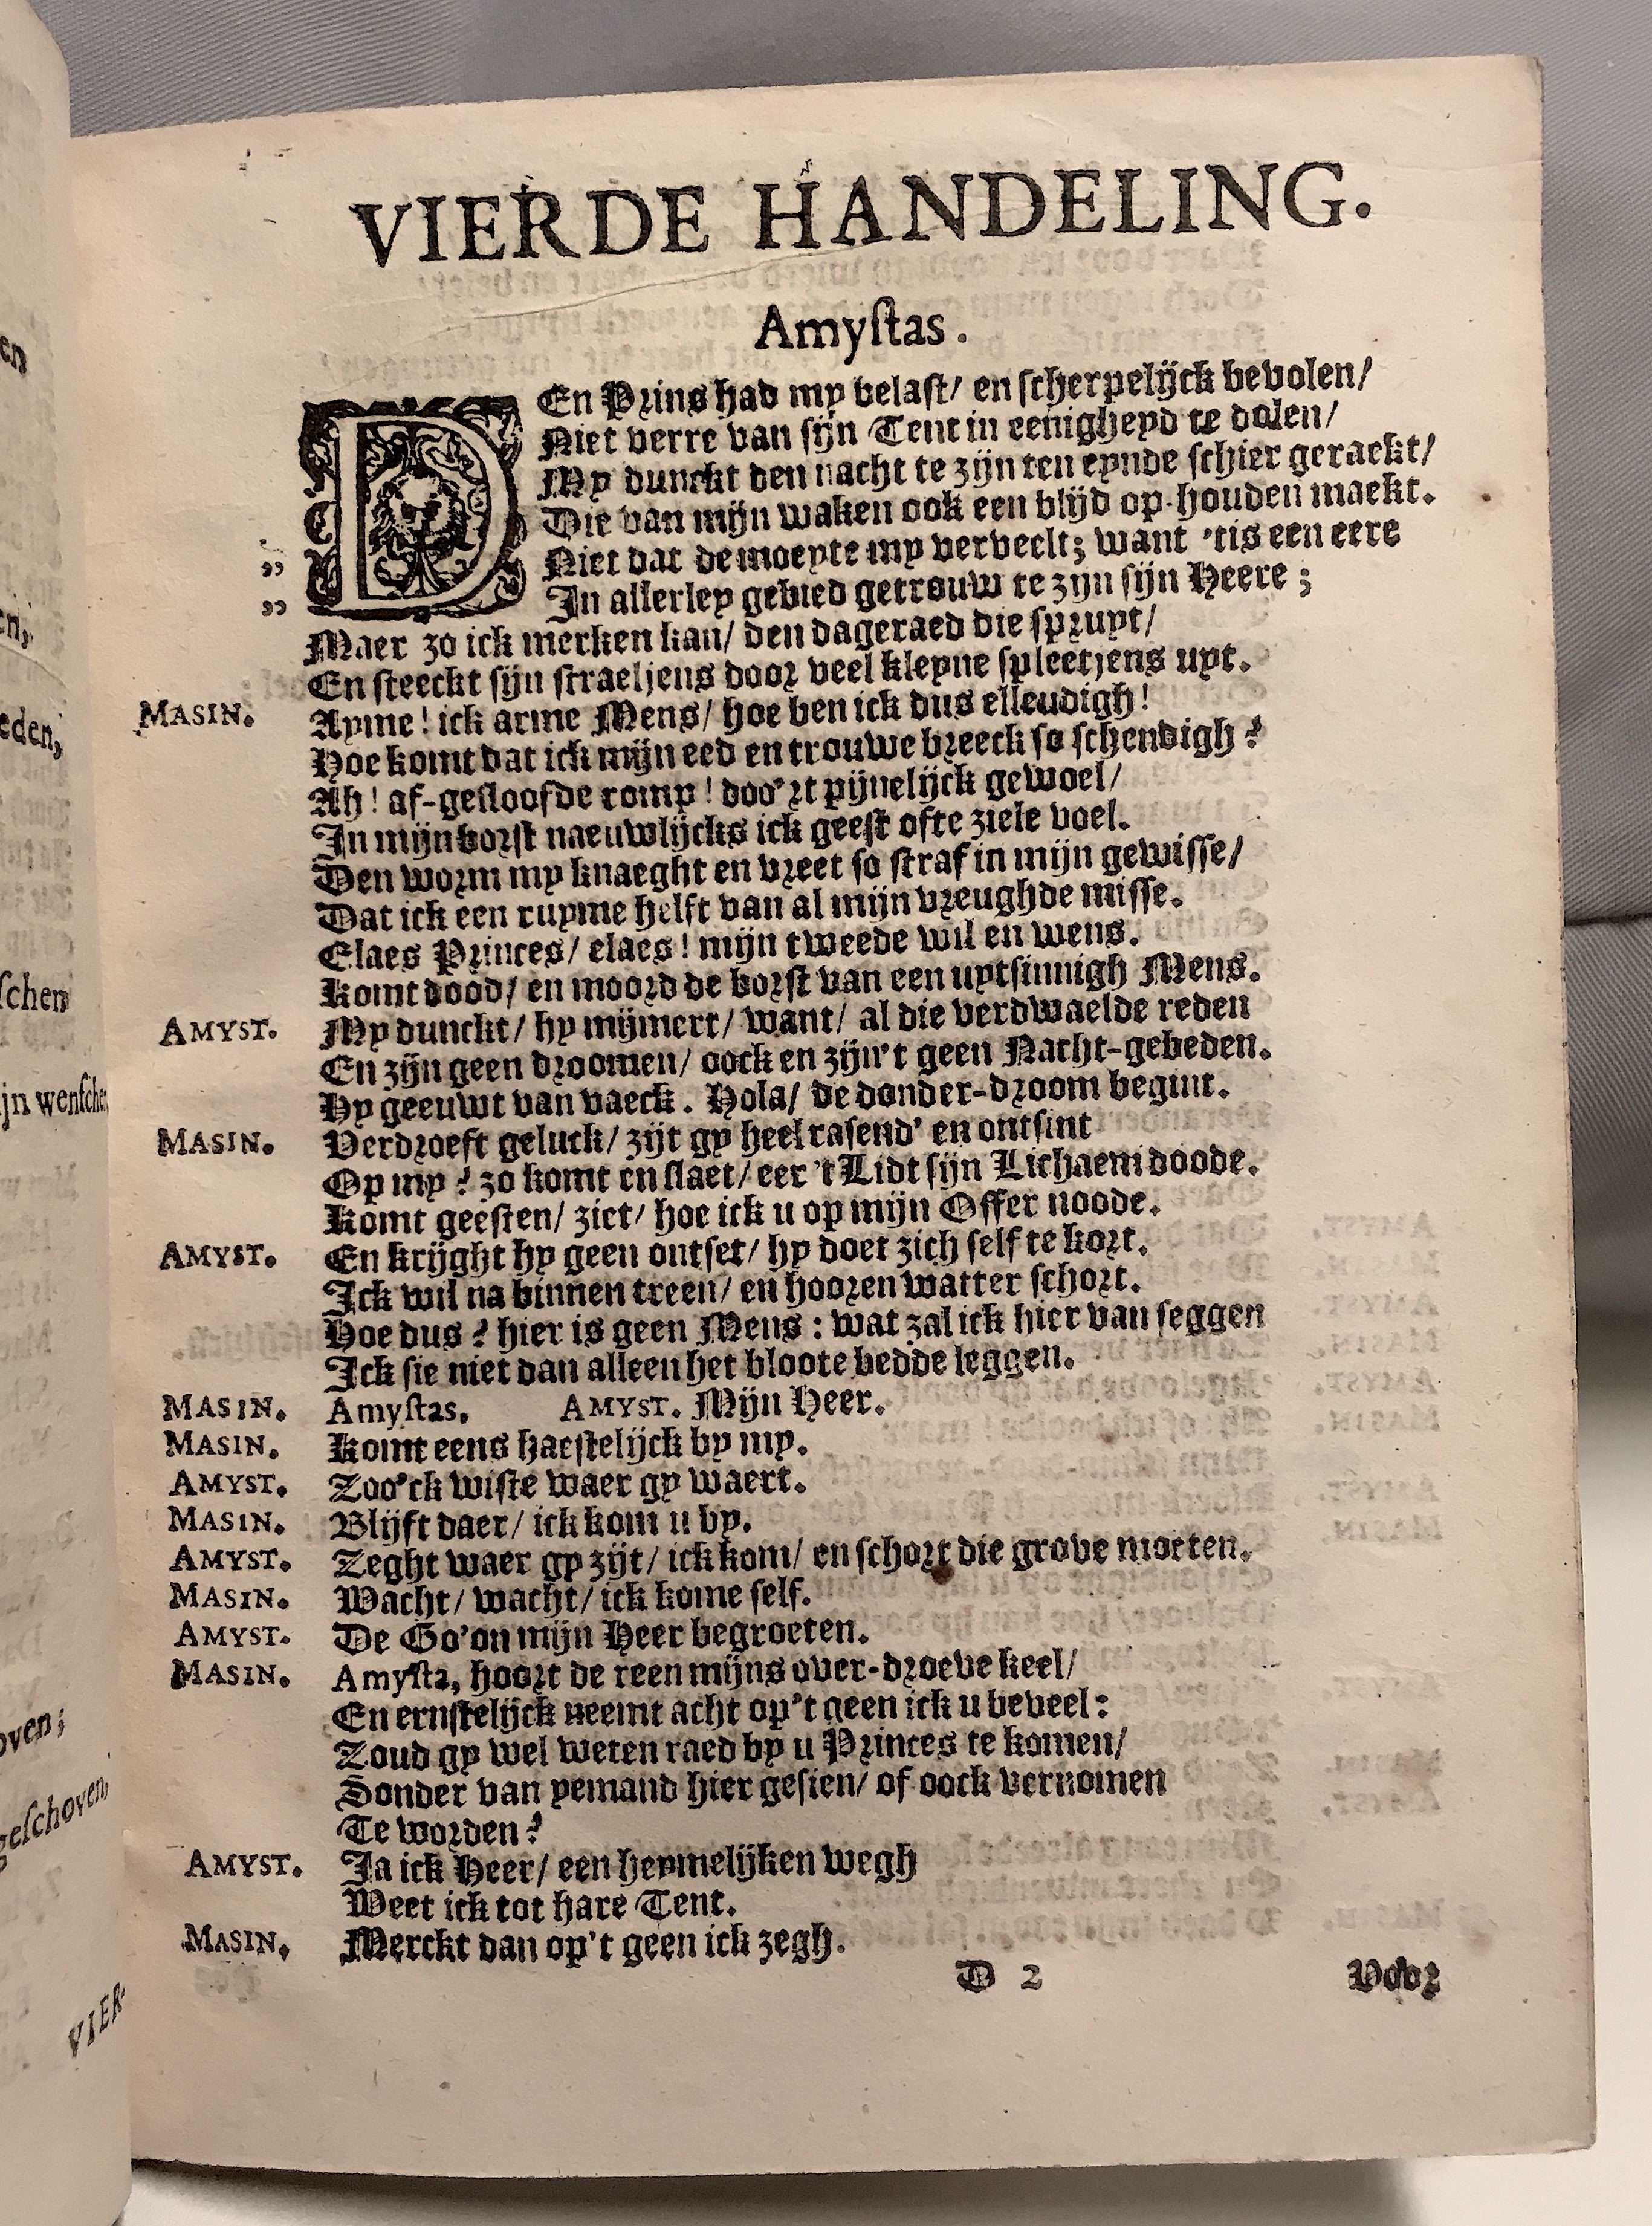 VIERDE HANDELING.
Amyſtas.
DEn Prins had my belaſt/ en ſcherpelijck bevolen/
Niet verre van ſijn Tent in eenigheyd te dolen/
My dunckt den nacht te zijn ten eynde ſchier geraekt/
Die van mijn waken ook een blijd op-houden maekt.
„ Niet dat de moeyte my verveelt; want 'tis een eere
„ In allerley gebied getrouw te zijn ſijn Heere;
Maer zo ick merken kan/ den dageraed die ſpruyt/
En ſteeckt ſijn ſtraeljens door veel kleyne ſpleetjens uyt.
MASIN. Ayme! ick arme Mens/ hoe ben ick dus ellendigh!
Hoe komt dat ick mijn eed en trouwe breeck ſo ſchendigh?
Ah! af-geſloofde romp! doo'rt pijnelijck gewoel/
In mijn borſt naeuwlijcks ick geeſt ofte ziele voel.
Den worm my knaeght en vreet ſo ſtraf in mijn gewiſſe/
Dat ick een ruyme helft van al mijn vreughde miſſe.
Elaes Princes/ elaes! mijn tweede wil en wens.
Komt dood/ en moord de borſt van een uytſinnigh Mens.
AMYST. My dunckt/ hy mijmert/ want/ al die verdwaelde reden
En zijn geen droomen/ oock en zijn't geen Nacht-gebeden.
Hy geeuwt van vaeck. Hola/ de donder-droom begint.
MASIN. Verdroeft geluck/ zijt gy heel raſend' en ontſint
Op my? zo komt en ſlaet/ eer 't Lidt ſijn Lichaem doode.
Komt geeſten/ ziet/ hoe ick u op mijn Offer noode.
AMYST. En krijght hy geen ontſet/ hy doet zich ſelf te kort.
Ick wil na binnen treen/ en hooren watter ſchort.
Hoe dus? hier is geen Mens: wat zal ick hier van ſeggen
Ick ſie niet dan alleen het bloote bedde leggen.
MASIN. Amyſtas. AMYST. Mijn Heer.
MASIN. Komt eens haeſtelijck by my.
AMYST. Zoo'ck wiſte waer gy waert.
MASIN. Blijft daer/ ick kom u by.
AMYST. Zeght waer gy zijt/ ick kom/ en ſchort die grove moeten.
MASIN. Wacht/ wacht/ ick kome ſelf.
AMYST. De Go'on mijn Heer begroeten.
MASIN. Amyſta, hoort de reen mijns over-droeve keel/
En ernſtelijck neemt acht op't geen ick u beveel:
Zoud gy wel weten raed by u Princes te komen/
Sonder van yemand hier geſien/ of oock vernomen
Te worden?
AMYST. Ja ick Heer/ een heymelijken wegh
Weet ick tot hare Tent.
MASIN. Merckt dan op't geen ick zegh.
D 2 Voor